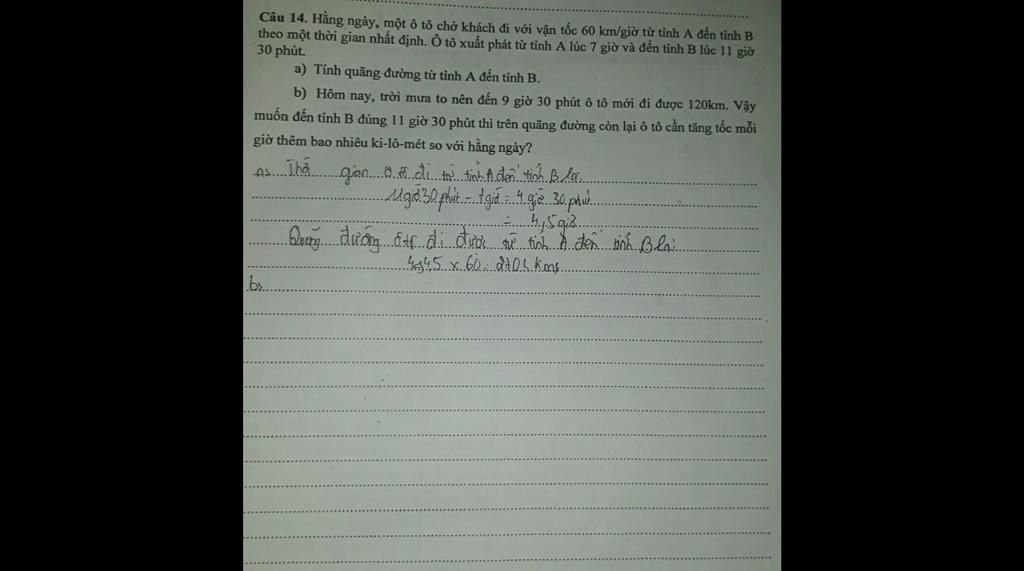 Câu 14. Hằng ngày, một ô tô chở khách đi với vận tốc 60 km/giờ từ tỉnh A đến tỉnh B
theo một thời gian nhất định. Ô tô xuất phát từ tỉnh A lúc 7 giờ và đến tỉnh B lúc 11 giờ
30 phút.
a) Tính quãng đường từ tỉnh A đến tỉnh B.
b) Hôm nay, trời mưa to nên đến 9 giờ 30 phút ô tô mới đi được 120km. Vậy
muốn đến tỉnh B đúng 11 giờ 30 phút thì trên quãng đường còn lại ô tô cần tăng tốc mỗi
giờ thêm bao nhiêu ki-lô-mét so với hằng ngày?
a) gian ô tô đi từ tỉnh A đến tỉnh B là
11 giờ 30 phút - 7 giờ = 4 giờ 30 phút
= 4,5 giờ
Quãng đường ô tô đi được từ tỉnh A đến tỉnh B là:
x 60 = 270 ( km)
b)